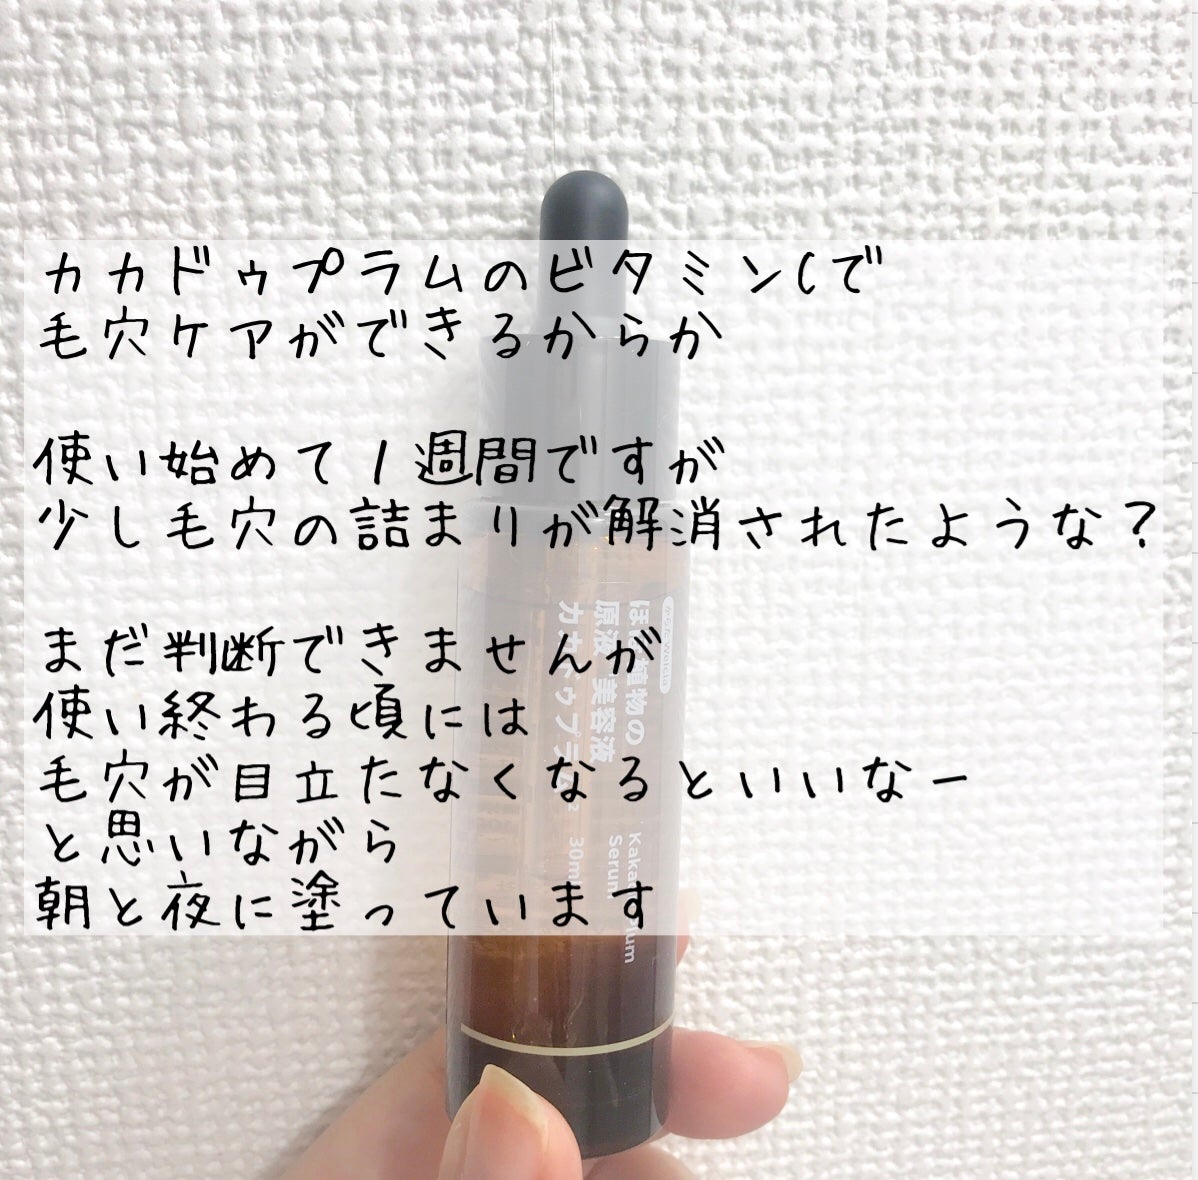 カカドゥプラムのビタミンCで
毛穴ケアができるからか
使い始めて1週間ですが
少し毛穴の詰まりが解消されたような？
まだ判断できませんが
使い終わる頃には
毛穴が目立たなくなるといいなー
と思いながら
朝と夜に塗っています
植物の
原液 美容液
カカドゥプラム
Serum
30ml